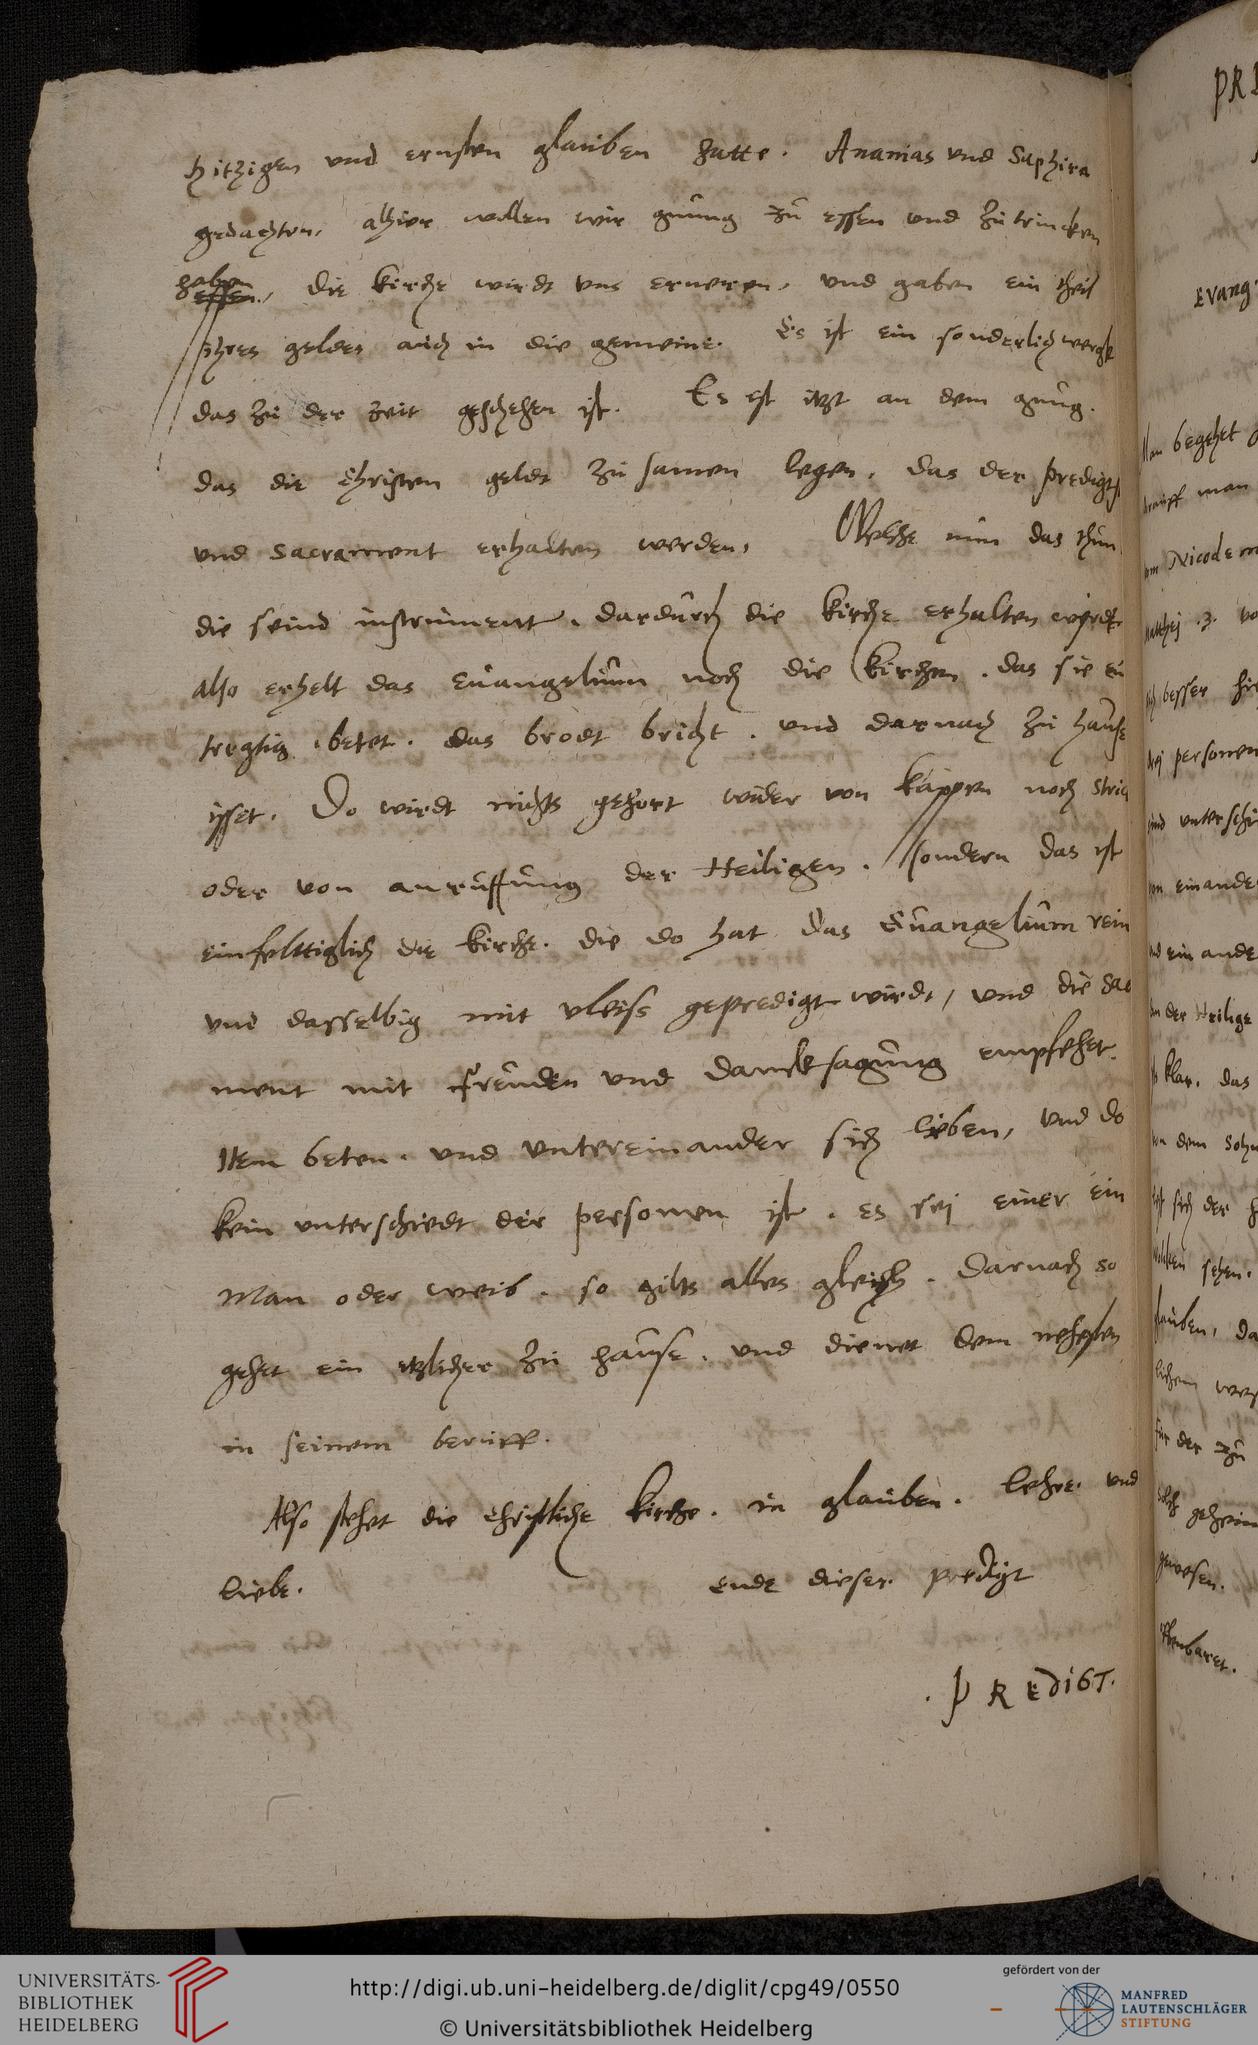 hitzigen vnd ernsten glauben hatte. Ananias vnd Saphira
gedachten, alhier wollen wir gnung zu essen vnd zu trincken
haben
essen, die kirche wirdt vns erneren, vnd gaben ein theil
ihres geldes auch in die gemeine. Es ist ein sonderlich wergk
das zu der zeit geschehen ist. Es ist itzt an dem gnung.
das die Christen geldt zu samen legen, das der predigt
vnd Sacrament erhalten werden, Welche nun das thun
die seind instrument, dardurch die kirche erhalten wirdt
also erhelt das Euangelium noch die kirchen. das sie ein
trechtig betet. das brodt bricht. vnd darnach zu hause
isset. Do wirdt nichts gehort wider von kappen noch Stric
oder von anruffung der Heiligen. sondern das ist
einfelttiglich die kirche. die do hat das Euangelium rein
vnd dasselbig mit vleiss gepredigt wirdt, vnd die Sac
ment mit freuden vnd dancksagung empfehet.
Item beten. vnd vntereinander sich lieben, vnd do
kein vnterschiedt der personen ist. es sej einer ein
Man oder weib. so gilts alles gleich. Darnach so
gehet ein itzlicher zu hause. vnd dienet dem nehesten
in seinem beruff.
Also stehet die christliche kirche. in glauben. lehre. vnd
liebe. ende dieser predigt
. PREDIGT.
PRE
Evang
Man begehet
drauff man
vom Nicodem
Matthej .3. vo
sich besser hi
drej personen
vnd vnterschi
von einande
vnd ein ande
an der Heilige
klar. das
von dem Sohn
sich der
sehen.
glauben, da
lichem wer
für der zu
solch geheim
gewesen.
offenbaret.
UNIVERSITÄTS-
BIBLIOTHEK
HEIDELBERG
http://digi.ub.uni-heidelberg.de/diglit/cpg49/0550
© Universitätsbibliothek Heidelberg
gefördert von der
MANFRED
LAUTENSCHLÄGER
STIFTUNG